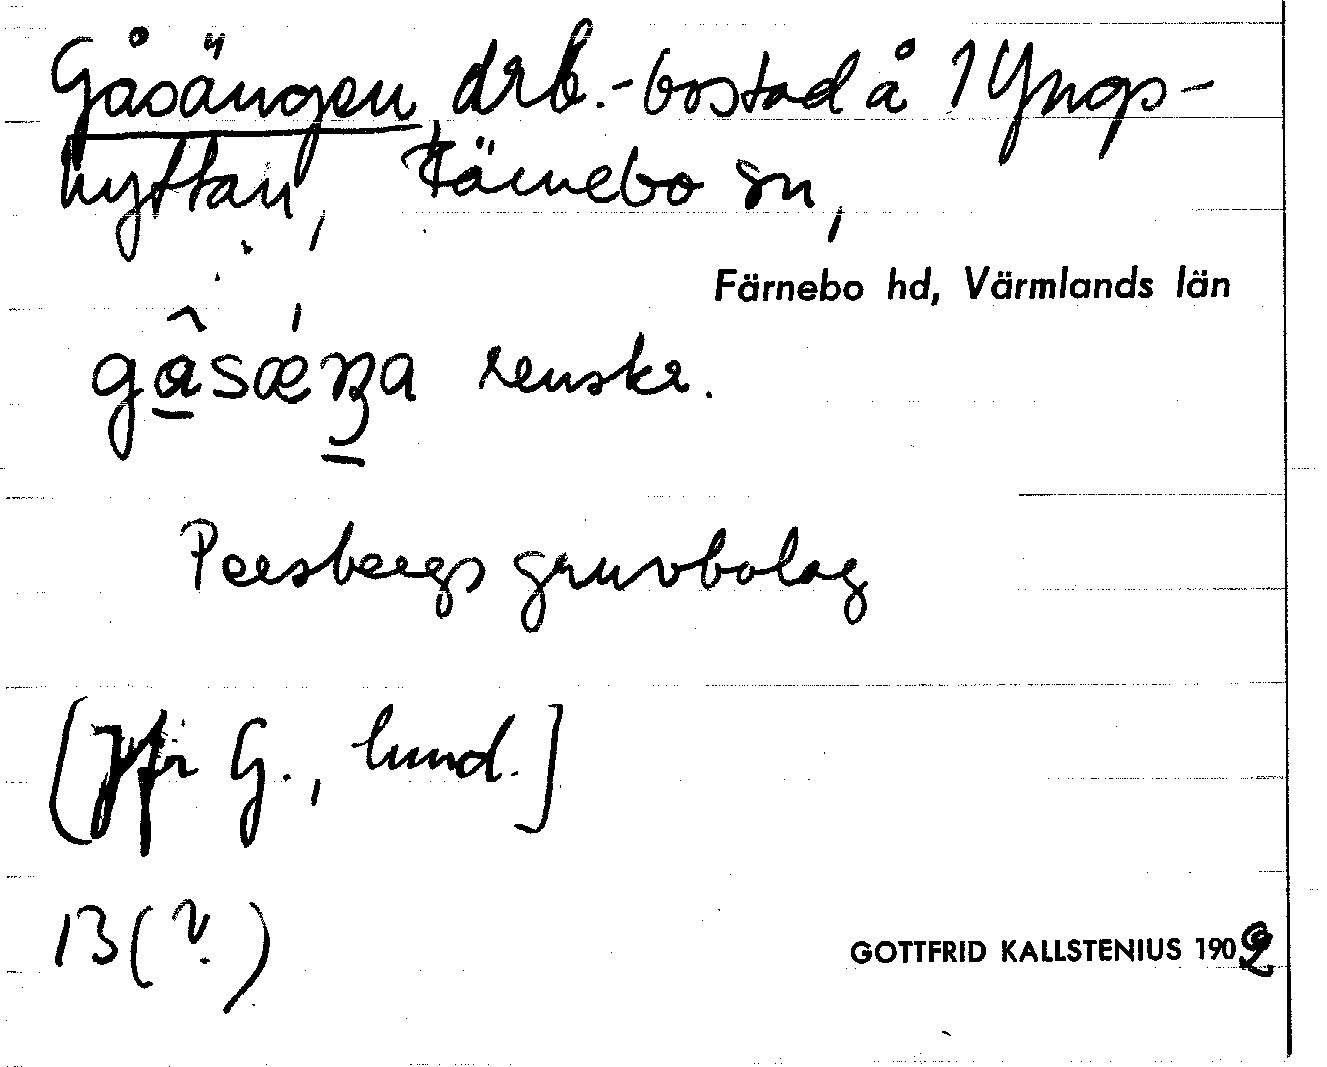 Gåsängen drb.-bostad å 1 Yngs-
hyttan, Färnebo sn,
Färnebo hd, Värmlands län
gâsǽŋa renskr.
Persbergs gruvbolag
[Jfr G., hmd.]
13(?)
GOTTFRID KALLSTENIUS 1902